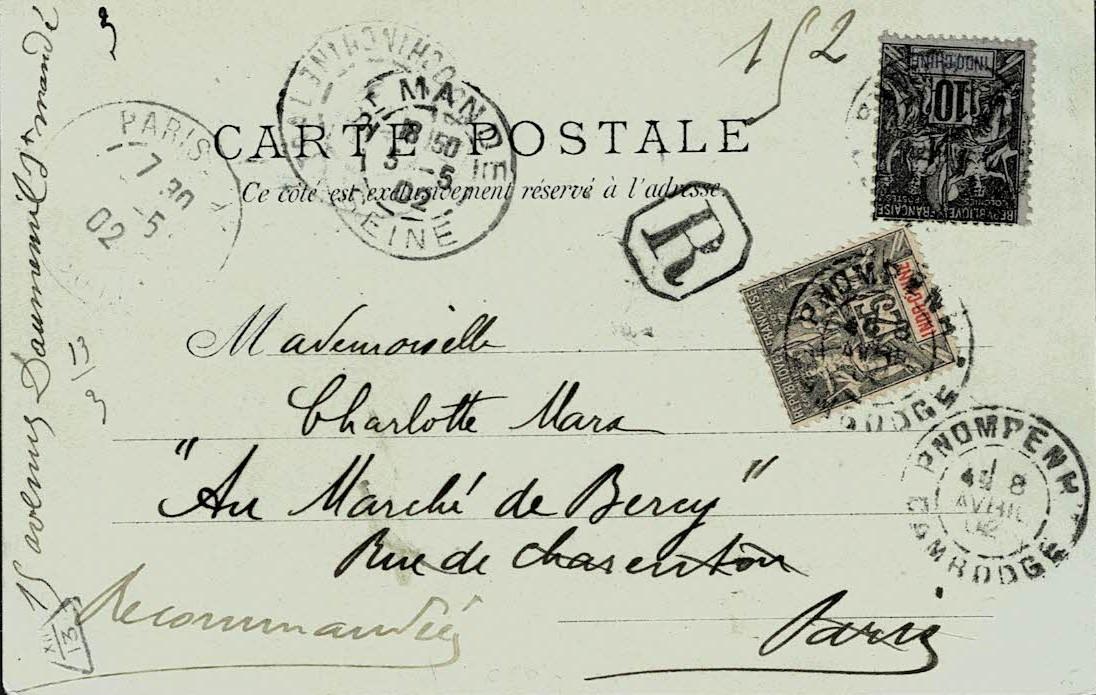 152
3
CARTE POSTALE
Ce côté est exclusivement réservé à l'adresse.
R
INDO-CHINE
10
REPUBLIQUE FRANÇAISE
COLONIES
POSTES
INDO-CHINE
REPUBLIQUE FRANÇAISE
PARIS
7 30
-5
02
COCHINCHINE
MAN
5 -5
02
SEINE
PNOM-PENH
CAMBODGE
PNOMPENH
8
AVRIL
02
CAMBODGE
Mademoiselle
Charlotte Mara
"Au Marché de Bercy"
Rue de Charenton
Paris
Recommandée
15 avenue Daumesnil St mandé
13/3
XII
13